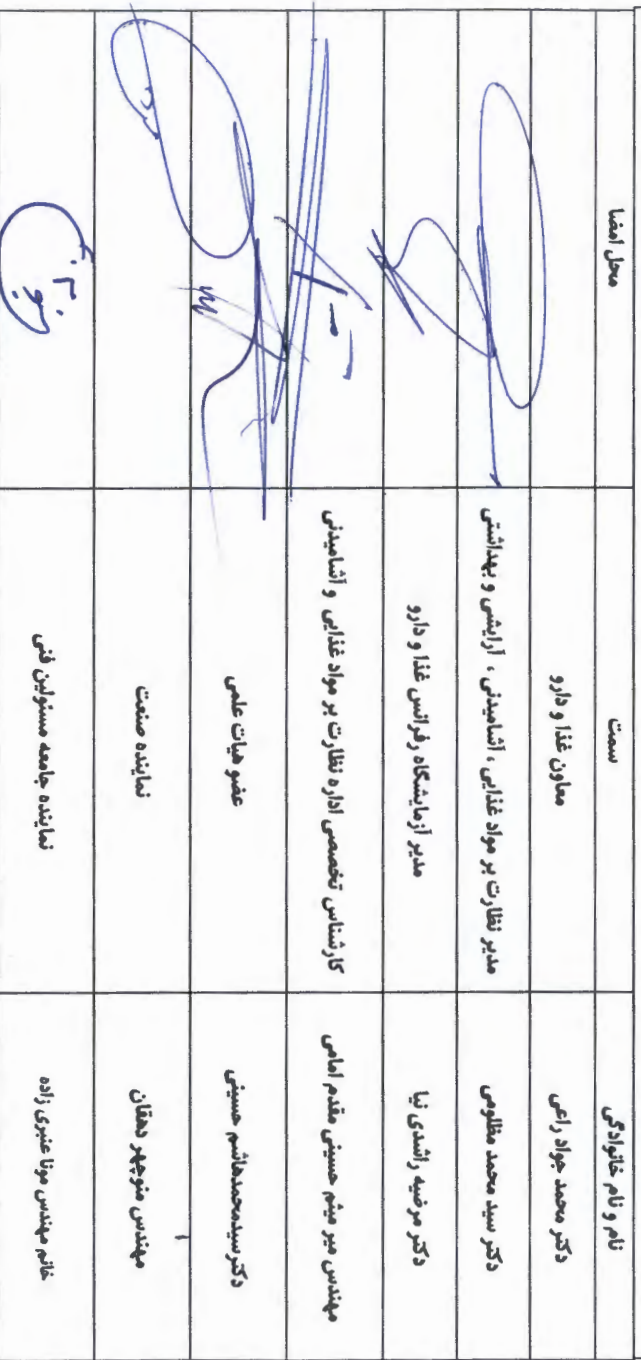 نام و نام خانوادگی سمت محل امضا
دکتر محمد جواد راعی معاون غذا و دارو
دکتر سید محمد مظلومی مدیر نظارت بر مواد غذایی ، آشامیدنی ، آرایشی و بهداشتی
دکتر مرضیه راشدی نیا مدیر آزمایشگاه رفرانس غذا و دارو
مهندس میر میثم حسینی مقدم امامی کارشناس تخصصی اداره نظارت بر مواد غذایی و آشامیدنی
دکتر سیدمحمدهاشم حسینی عضو هیات علمی
مهندس منوچهر دهقان نماینده صنعت
خانم مهندس مونا عنبری زاده نماینده جامعه مسئولین فنی